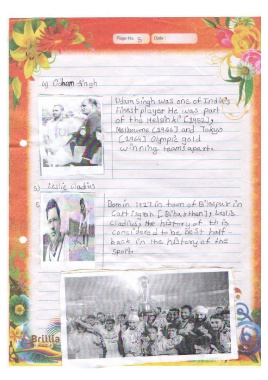 Page No. 5 Date :
4) Odham Singh
Udam Singh was one of India's
finest player He was part
of the Helsinki [1952],
Melbourne (1966) and Tokyo
(1964) Olympic gold
winning teams apart.
5) Leslie Cladius
Born in 1927 in town of Bilaspur in
the history of this
considered to be best half-
back in the history of the
sport.
Brillia